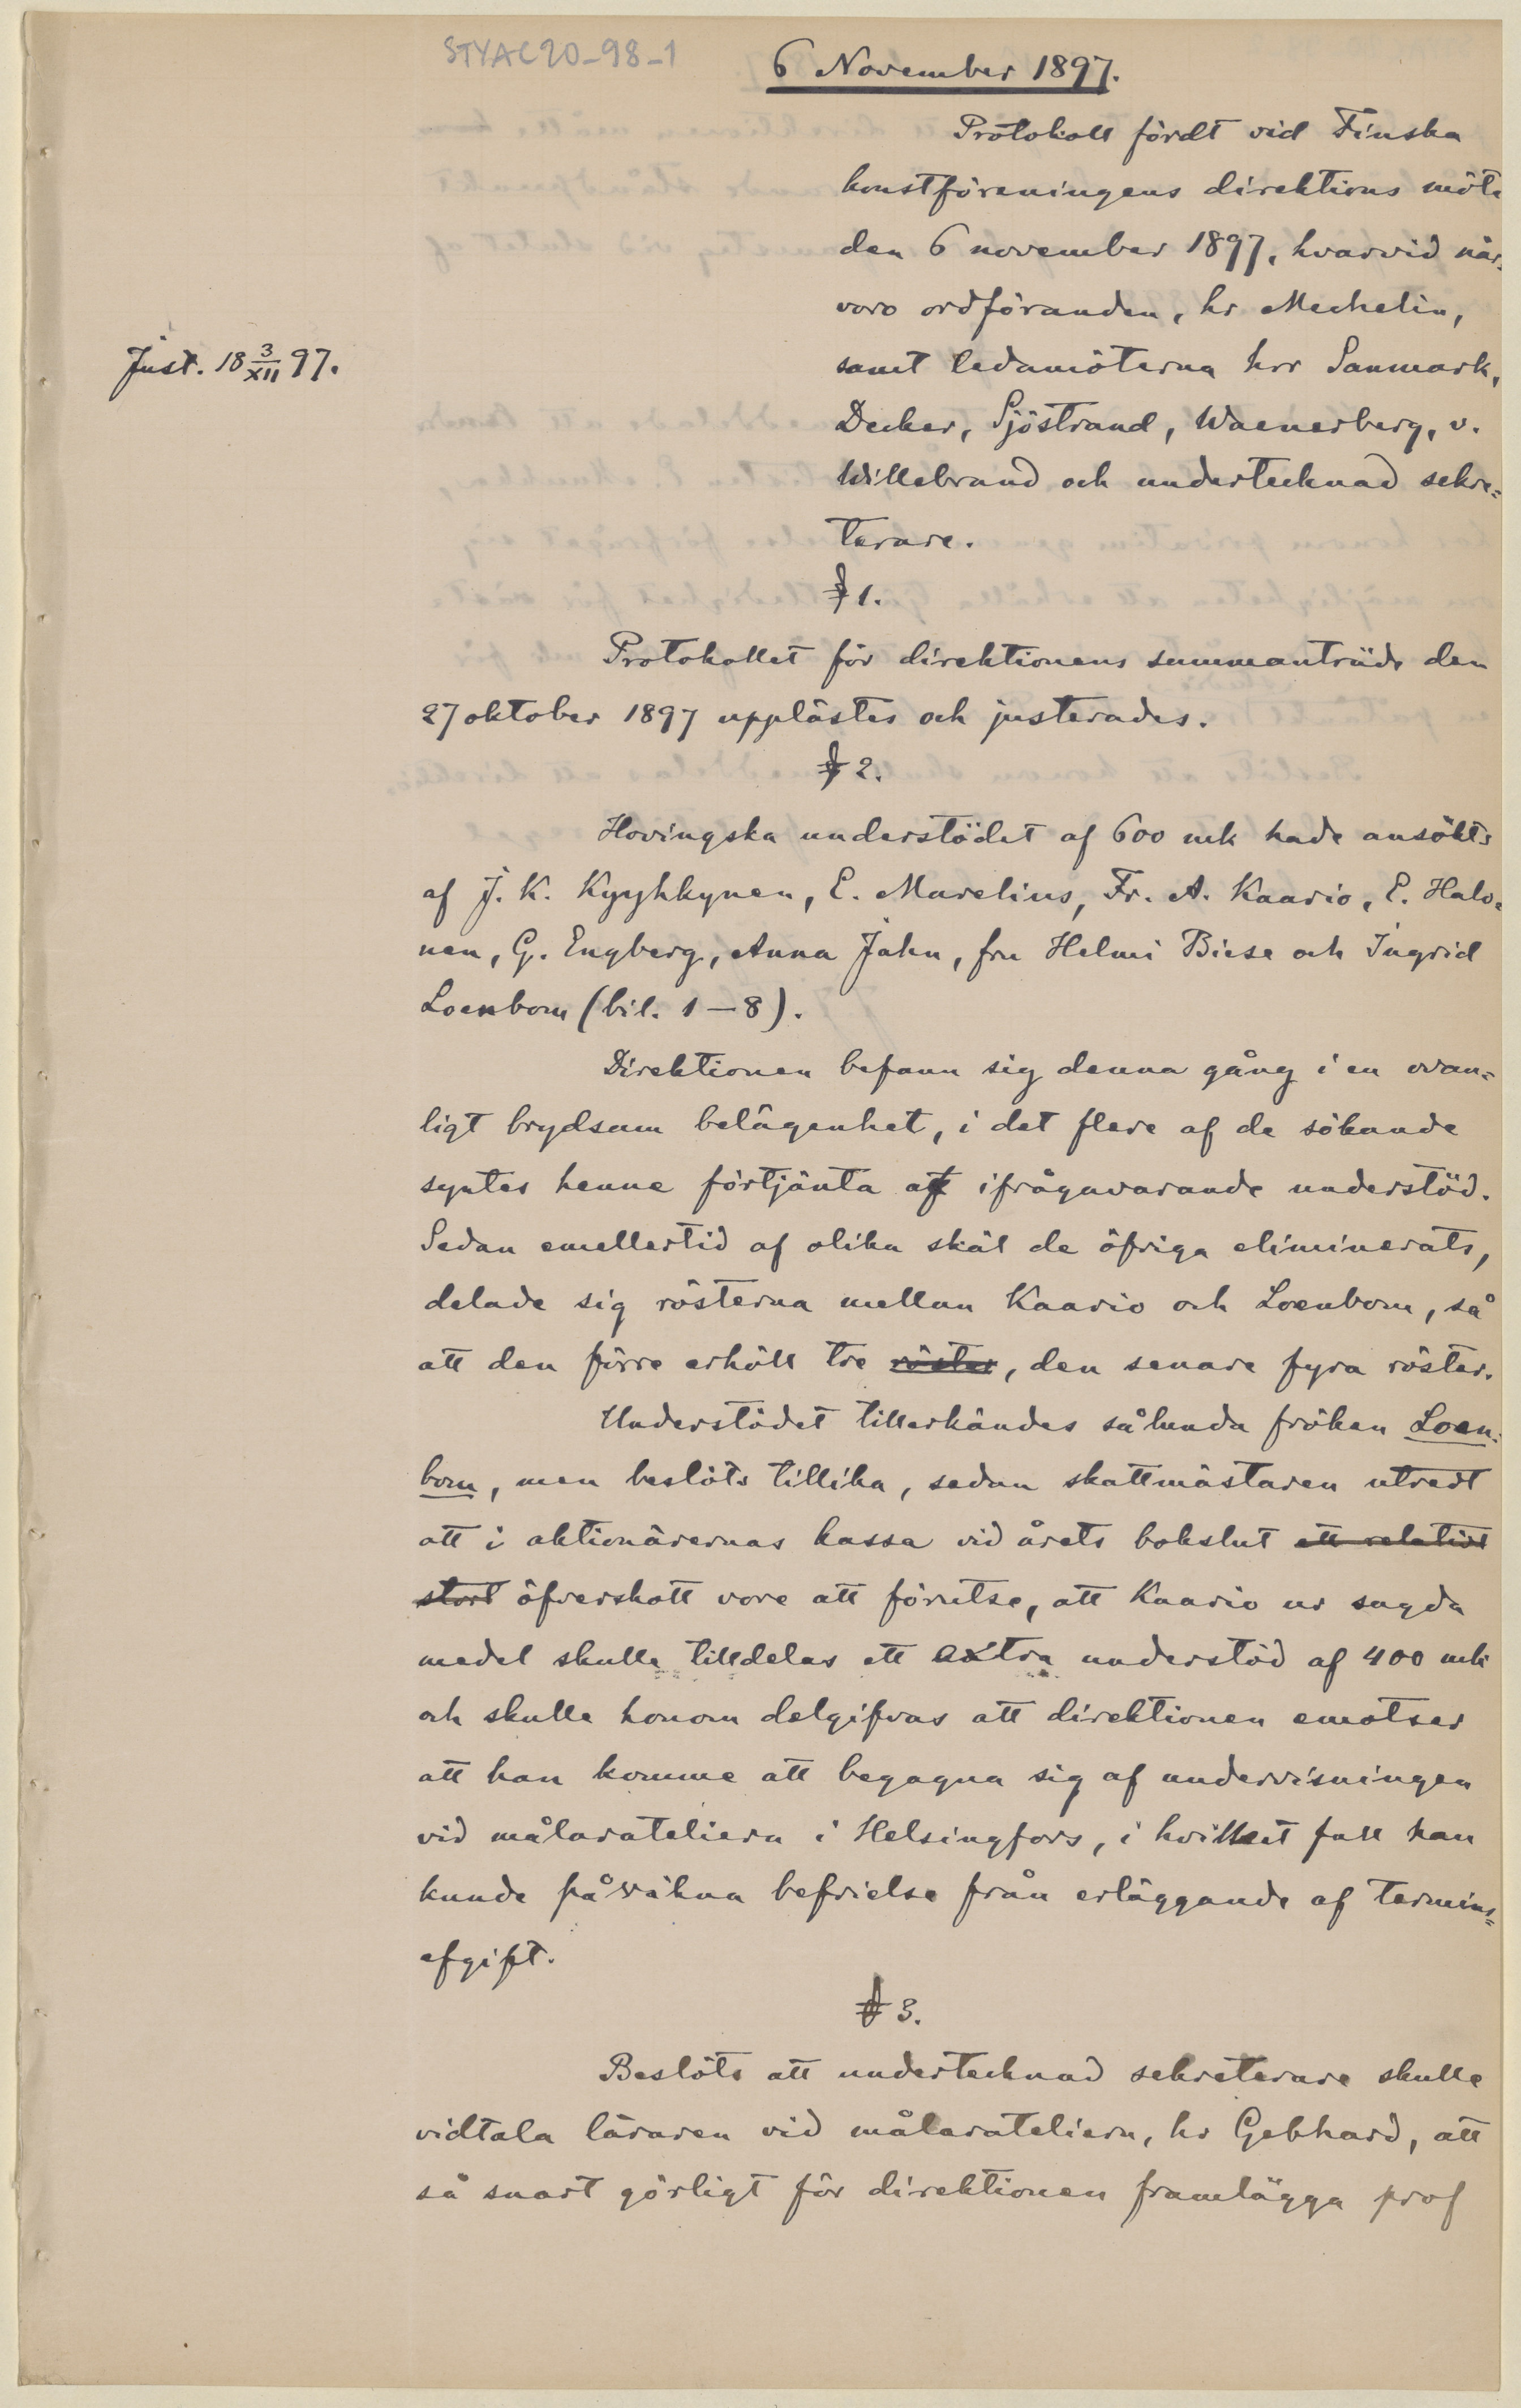 STYAC20-98-1
6 November 1897.
Protokoll fördt vid Finska
konstföreningens direktions möte
den 6 november 1897, hvarvid när-
voro ordföranden, hr Mechelin,
samt ledamöterna hrr Sanmark,
Decker, Sjöstrand, Waenerberg, v.
Willebrand och undertecknad sekre=
terare.
Just. 18 3/XII 97.
§ 1.
Protokollet för direktionens sammanträde den
27 oktober 1897 upplästes och justerades.
§ 2.
Hovingska understödet af 600 mk hade ansökts
af J. K. Kyyhkynen, E. Marelius, Fr. A. Kaario, E. Halo-
nen, G. Engberg, Anna Jahn, fru Helmi Biese och Ingrid
Loenbom (bil. 1—8).
Direktionen befann sig denna gång i en ovan=
ligt brydsam belägenhet, i det flere af de sökande
syntes henne förtjänta af ifrågavarande understöd.
Sedan emellertid af olika skäl de öfriga eliminerats,
delade sig rösterna mellan Kaario och Loenbom, så
att den förre erhöll tre röster, den senare fyra röster.
Understödet tillerkändes sålunda fröken Loen-
bom, men beslöts tillika, sedan skattmästaren utredt
att i aktionärernas kassa vid årets bokslut ett relativt
stort öfverskott vore att förutse, att Kaario ur sagda
medel skulle tilldelas ett extra understöd af 400 mk
och skulle honom delgifvas att direktionen emotser
att han komme att begagna sig af undervisningen
vid målarateliern i Helsingfors, i hvilket fall han
kunde påräkna befrielse från erläggande af termins=
afgift.
§ 3.
Beslöts att undertecknad sekreterare skulle
vidtala läraren vid målarateliern, hr Gebhard, att
så snart görligt för direktionen framlägga prof